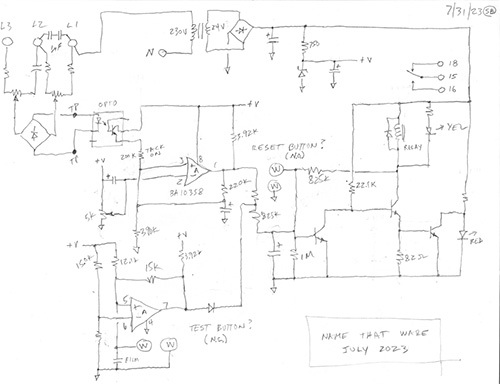 7/31/23
L3
L2
L1
230V
24V
N
750
+V
18
15
16
TP
OPTO
+V
+V
3.92K
RELAY
YEL
200K
TACK
ON
RESET BUTTON?
(NO)
W
W
+V
3
8
1
2
A
BA10358
220K
825K
22.1K
825K
TP
5K
390K
+V
+V
150K
3.92K
15K
1M
825Ω
RED
5
7
6
4
A
TEST BUTTON?
(NO)
W
W
NAME THAT WARE
JULY 2023